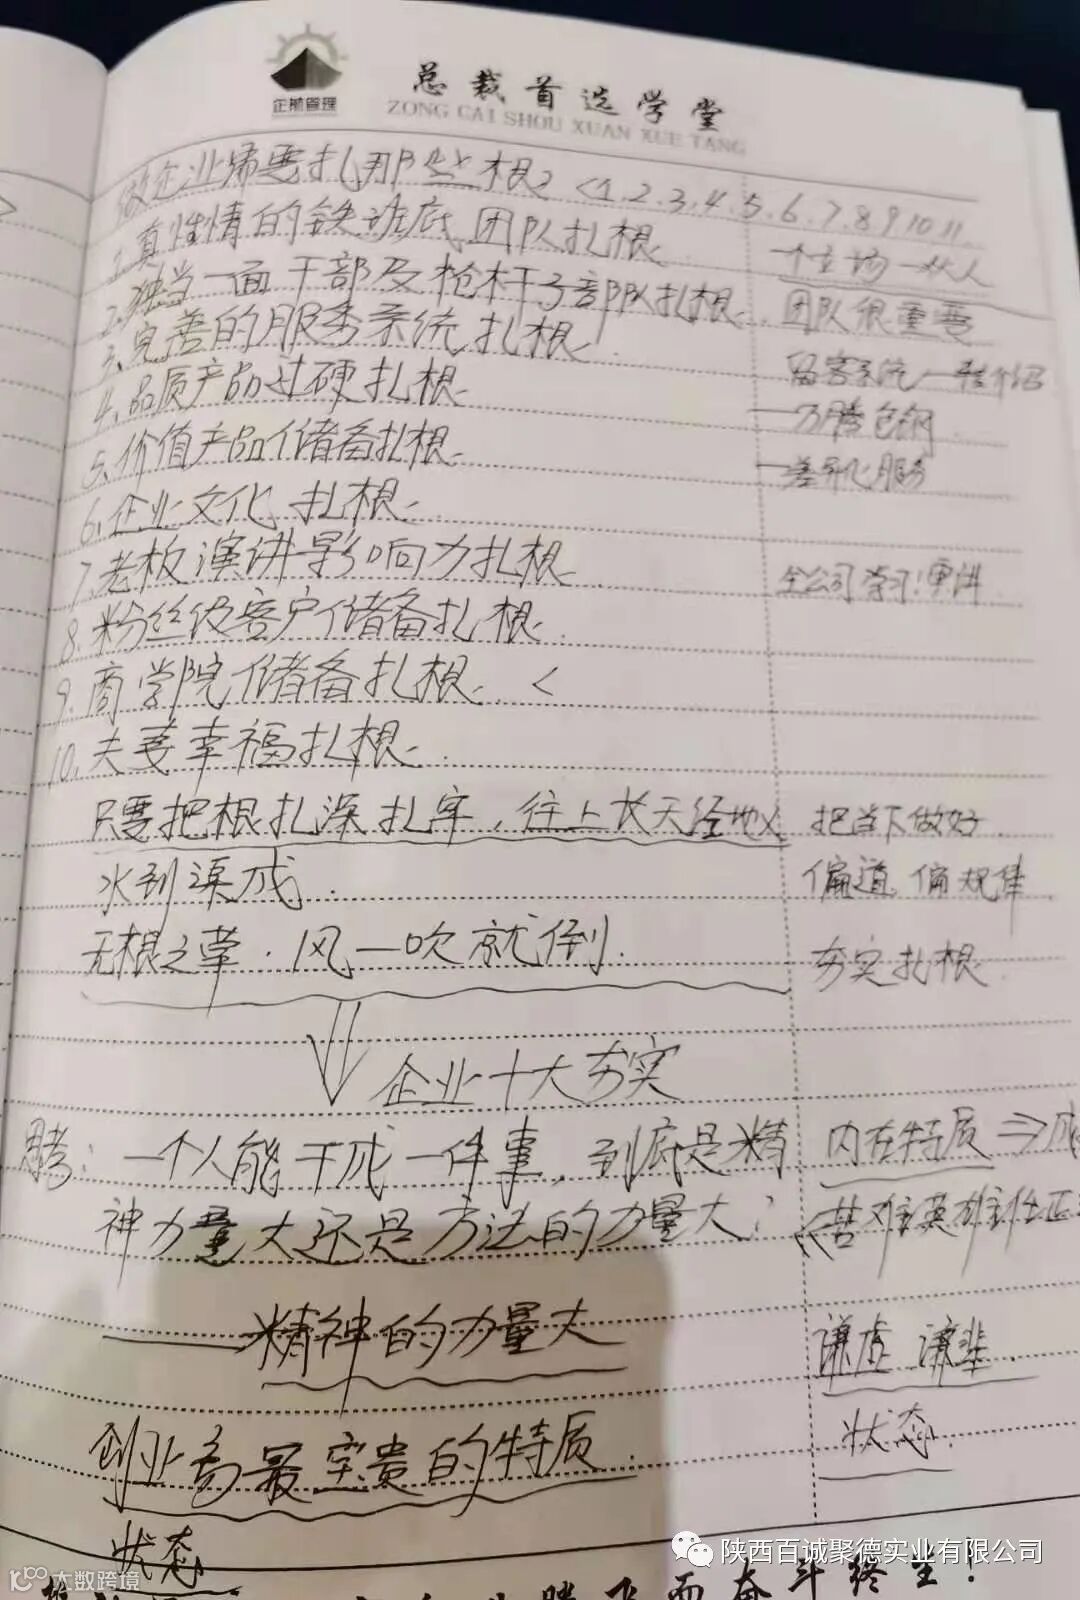 企航管理
总裁首选学堂
ZONG CAI SHOU XUAN XUE TANG
做企业需要扎那些根? <1.2.3.4.5.6.7.8.9.10.11
1.真性情的铁班底团队扎根. 一个立场一伙人
2.独当一面干部及枪杆子部队扎根. 团队很重要
3.完善的服务系统扎根 留客系统—转介绍
4.品质产品过硬扎根.
5.价值产品储备扎根. —差异化服务
6.企业文化扎根.
7.老板演讲影响力扎根 全公司学习!
8.粉丝级客户储备扎根.
9.商学院储备扎根. <
10.夫妻幸福扎根.
只要把根扎深扎牢,往上长天经地义 把当下做好
水到渠成. 偏道 偏规律
无根之草.风一吹就倒. 夯实扎根
企业十大夯实
思考:一个人能干成一件事,到底是精 内在特质⇒成
神力量大还是方法的力量大? 苦难英雄
——精神的力量大 谦虚 谦卑
创业者最宝贵的特质. 状态
状态
而奋斗终生!
陕西百诚聚德实业有限公司
大数跨境